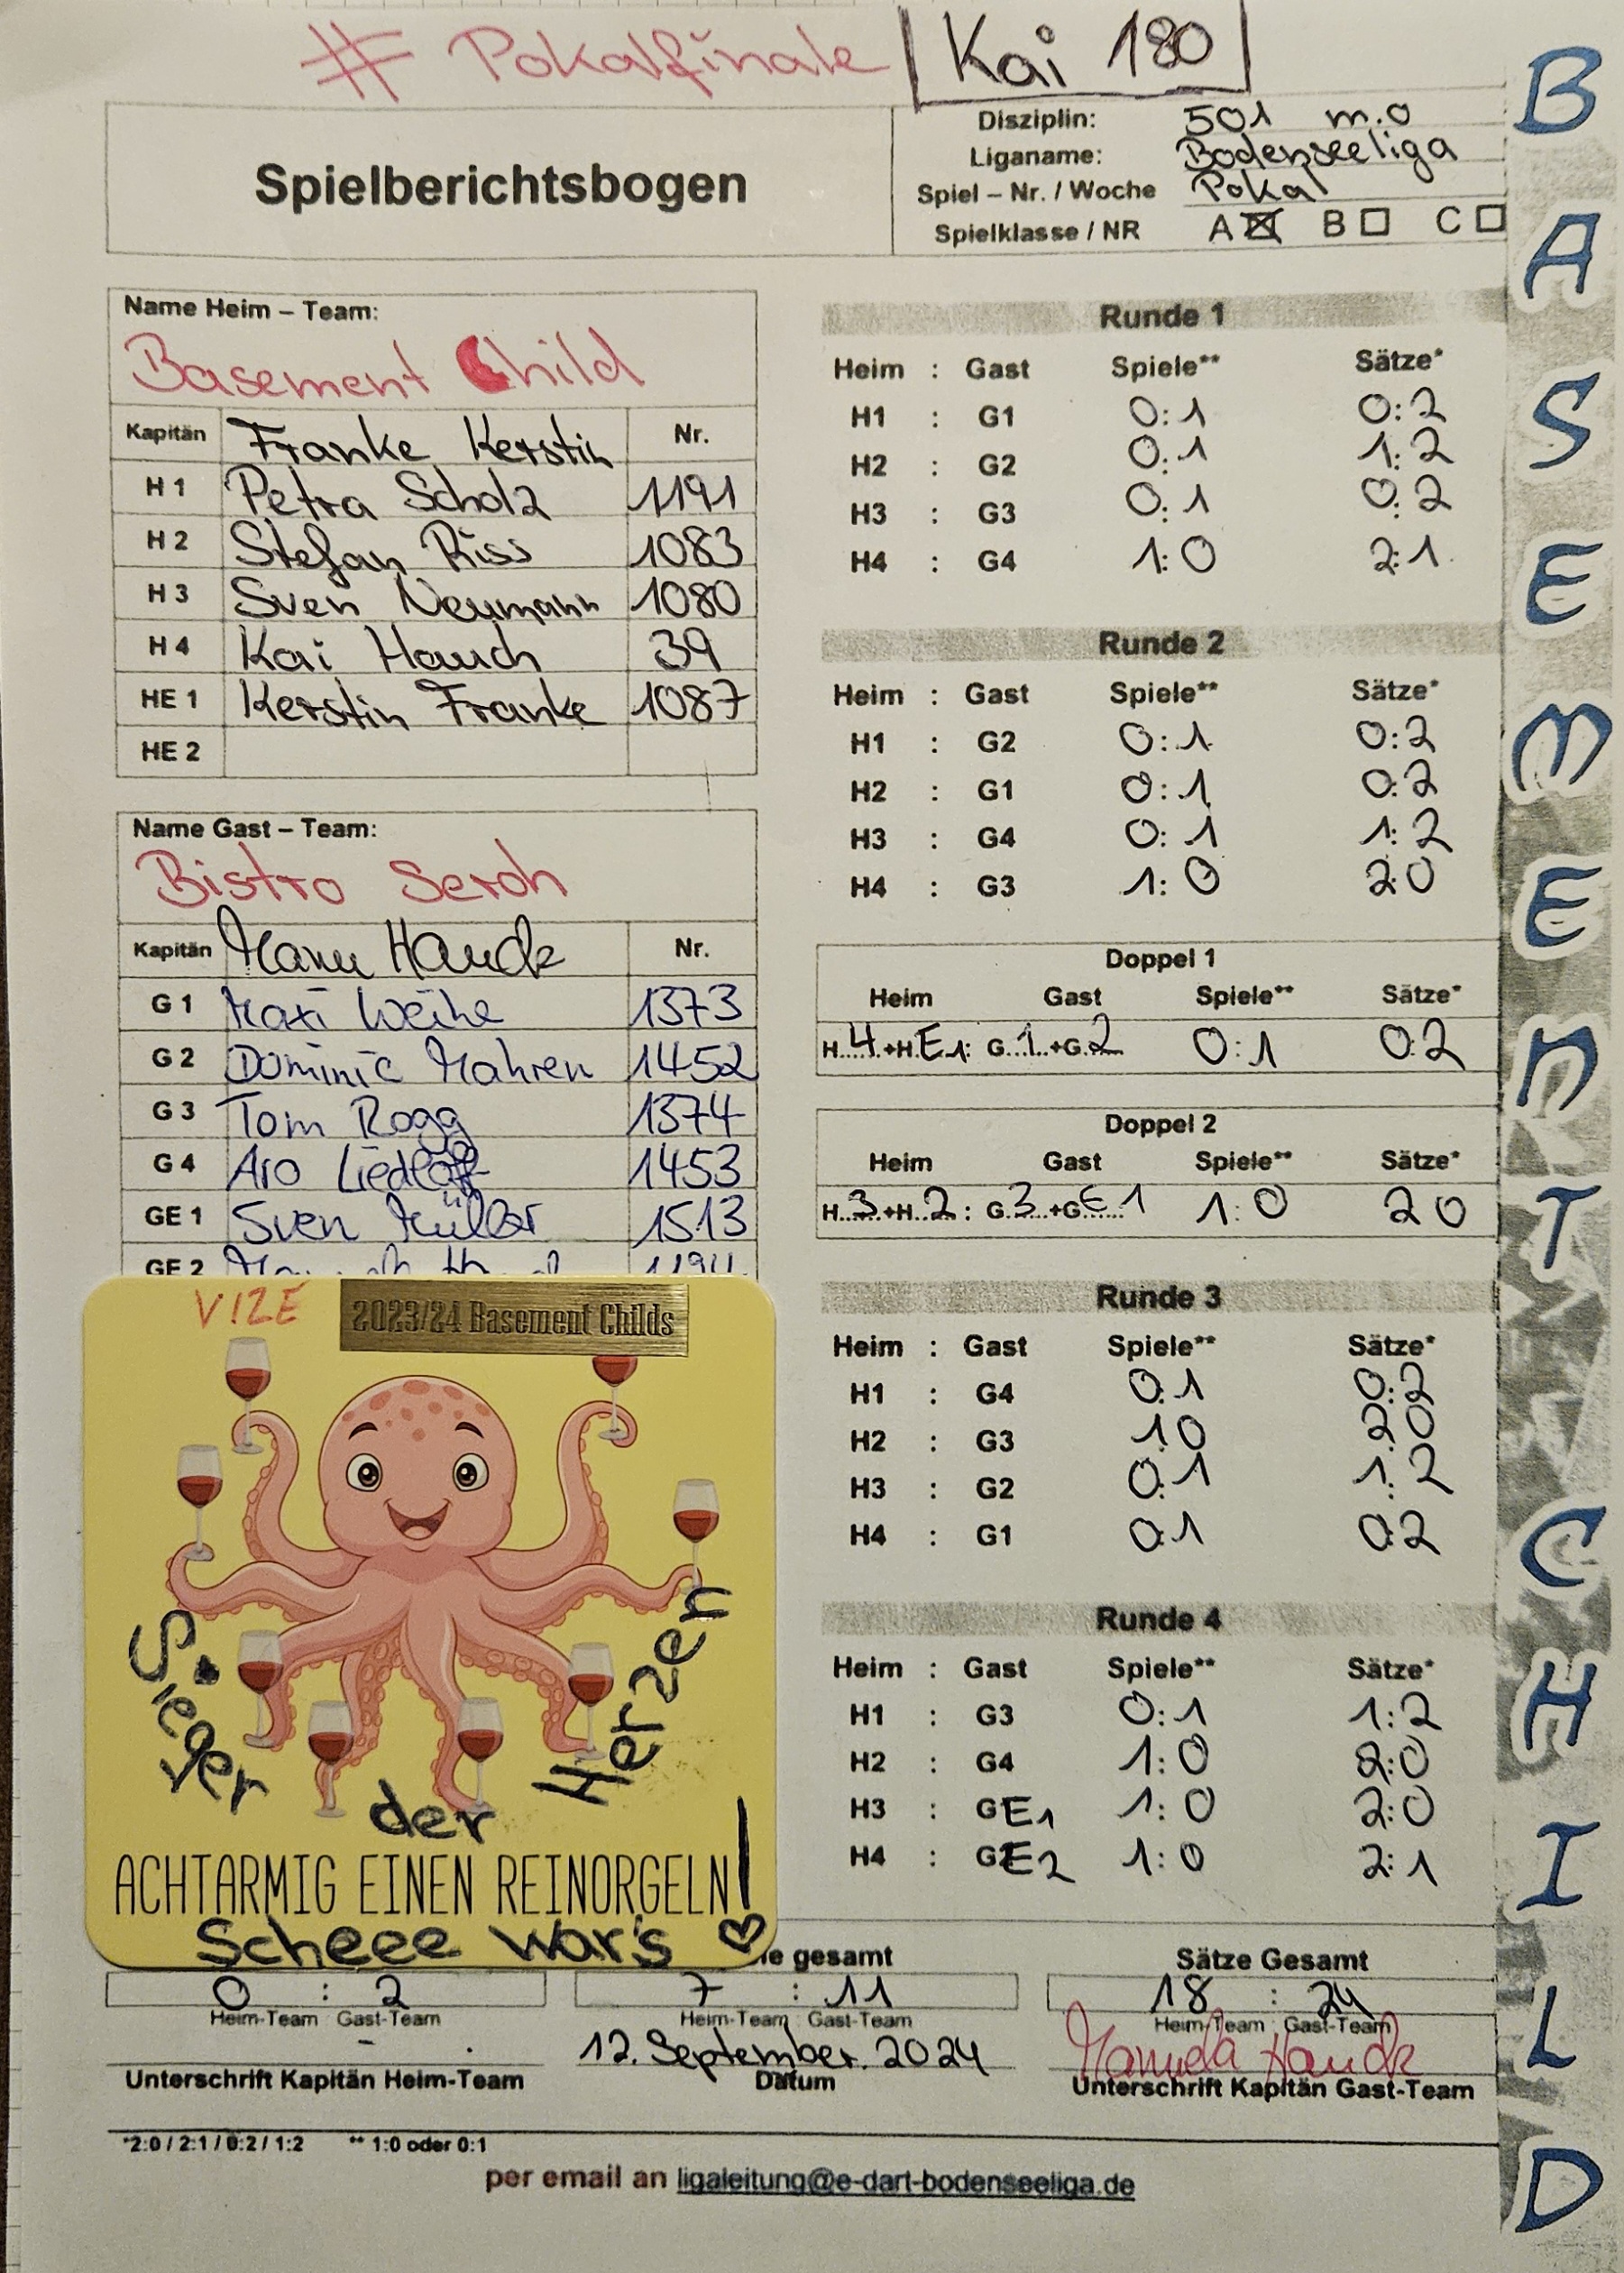 # Pokalfinale Kai 180
Spielberichtsbogen
Disziplin: 501 m.o
Liganame: Bodenseeliga
Spiel – Nr. / Woche Pokal
Spielklasse / NR A ☒ B ☐ C ☐
Name Heim – Team:
Basement Child
Kapitän Franke Kerstin Nr.
H 1 Petra Scholz 1191
H 2 Stefan Riss 1083
H 3 Sven Neumann 1080
H 4 Kai Hauch 39
HE 1 Kerstin Franke 1087
HE 2
Name Gast – Team:
Bistro Serch
Kapitän Manu Hauck Nr.
G 1 Maxi Weihe 1373
G 2 Dominic Mahren 1452
G 3 Tom Rogg 1374
G 4 Aro Liedloff 1453
GE 1 Sven Müller 1513
GE 2
VIZE 2023/24 Basement Childs
Sieger
der
Herzen
ACHTARMIG EINEN REINORGELN!
Scheee war's ♡
Runde 1
Heim : Gast Spiele** Sätze*
H1 : G1 0:1 0:2
H2 : G2 0:1 1:2
H3 : G3 0:1 0:2
H4 : G4 1:0 2:1
Runde 2
Heim : Gast Spiele** Sätze*
H1 : G2 0:1 0:2
H2 : G1 0:1 0:2
H3 : G4 0:1 1:2
H4 : G3 1:0 2:0
Doppel 1
Heim Gast Spiele** Sätze*
H...4..+H.E1: G...1..+G.2.... 0:1 0:2
Doppel 2
Heim Gast Spiele** Sätze*
H...3...+H..2.: G.3...+GE1 1:0 2 0
Runde 3
Heim : Gast Spiele** Sätze*
H1 : G4 0:1 0:2
H2 : G3 1 0 2 0
H3 : G2 0:1 1:2
H4 : G1 0:1 0:2
Runde 4
Heim : Gast Spiele** Sätze*
H1 : G3 0:1 1:2
H2 : G4 1:0 2:0
H3 : GE1 1:0 2:0
H4 : GE2 1:0 2:1
le gesamt Sätze Gesamt
0 : 2 7 : 11 18 : 24
Heim-Team : Gast-Team Heim-Team : Gast-Team Heim-Team : Gast-Team
12. September. 2024 Manuela Hauck
Unterschrift Kapitän Heim-Team Datum Unterschrift Kapitän Gast-Team
*2:0 / 2:1 / 0:2 / 1:2 ** 1:0 oder 0:1
per email an ligaleitung@e-dart-bodenseeliga.de
BASEMENT CHILD